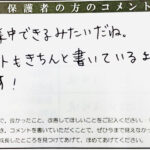 保護者の方のコメント
集中できるみたいだね。
トもきちんと書いている上
す!
で、良かったこと、改善してほしいことをご記入ください。
き、コメントを書いていただくことで、ぜひ今まで見えなか
成長したところを見つけてあげて、ほめてあげてください。